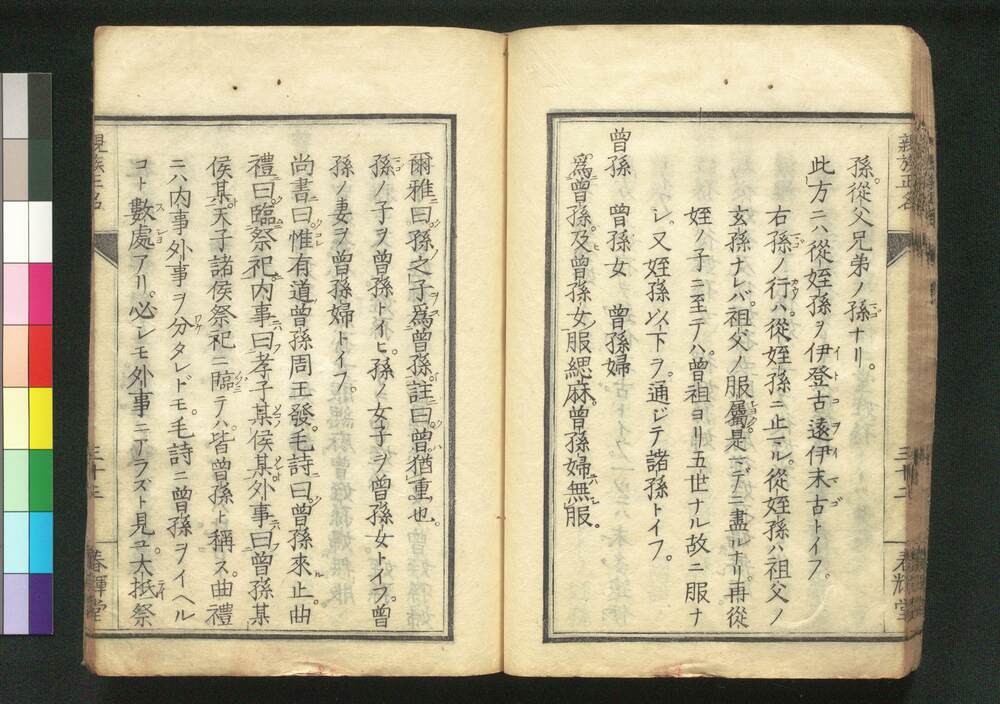 親族正名
三十二
春輝堂
孫。從父兄弟ノ孫ナリ。
此方ニハ從姪孫ヲ伊登古遠伊末古トイフ。
右孫ノ行ハ。從姪孫ニ止マル。從姪孫ハ祖父ノ
玄孫ナレバ。祖父ノ服屬是マデニ盡ルナリ。再從
姪ノ子ニ至テハ。曾祖ヨリ五世ナル故ニ服ナ
シ。又姪孫以下ヲ。通ジテ諸孫トイフ。
曾孫　曾孫女　曾孫婦
爲曾孫。及曾孫女服緦麻。曾孫婦無服。
爾雅曰。孫之子爲曾孫。註曰。曾猶重也。
孫ノ子ヲ曾孫トイヒ。孫ノ女子ヲ曾孫女トイフ。曾
孫ノ妻ヲ曾孫婦トイフ。
尚書曰。惟有道曾孫周王發。毛詩曰。曾孫來止。曲
禮曰。臨祭祀。内事曰孝子某侯某。外事曰曾孫某
侯某。天子諸侯祭祀ニ臨テハ。皆曾孫ト稱ス。曲禮
ニハ内事外事ヲ分タレドモ。毛詩ニ曾孫ヲイヘル
コト數處アリ。必シモ外事ニアラズト見ユ。大抵祭
親族正名
三十三
春輝堂